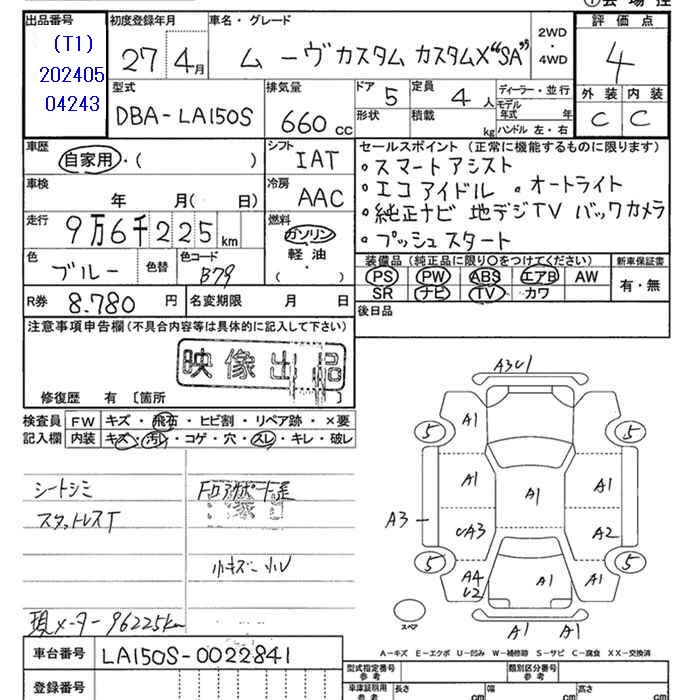 ①会場控
出品番号
(T1)
202405
04243
初度登録年月
27 4月
車名・グレード
ムーヴカスタム カスタムX"SA"
2WD
・
4WD
評価点
4
外装 内装
C C
型式
DBA-LA150S
排気量
660 cc
ドア 5
形状
定員 4 人
積載 kg
ディーラー・並行
モデル年式 年
ハンドル 左・右
車歴
自家用・( )
シフト
IAT
セールスポイント(正常に機能するものに限ります)
・スマートアシスト
・エコアイドル ・オートライト
・純正ナビ 地デジTV バックカメラ
・プッシュスタート
車検
年 月( 日)
冷房
AAC
走行
9万6千225km
燃料
ガソリン
軽油
( )
色
ブルー
色替
色コード
B79
装備品(純正品に限り○をつけてください)
PS PW ABS エアB AW
SR ナビ TV カワ
新車保証書
有・無
R券 8.780 円
名変期限 月 日
後日品
注意事項申告欄(不具合内容等は具体的に記入して下さい)
映像出品
修復歴 有 〔箇所
検査員 FW キズ・飛石・ヒビ割・リペア跡・×要
記入欄 内装 キズ・汚レ・コゲ・穴・スレ・キレ・破レ
シートシミ
スタットレスT
小キズ 小U
現メーター96225km
車台番号 LA150S-0022841
登録番号
A3U1
A1
5 5
A1 A1 A1
A3
UA3 A2
5 5
A4
U2
A1 A1
A1 A1
スペア
A-キズ E-エクボ U-凹み W-補修跡 S-サビ C-腐食 XX-交換済
型式指定番号
参考
類別区分番号
参考
車庫証明用
参考
長さ cm 幅 cm 高さ cm